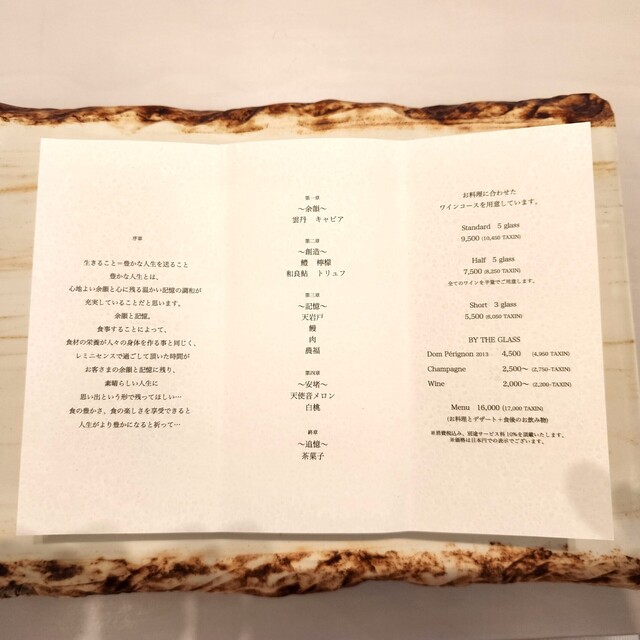 序章
生きること＝豊かな人生を送ること
豊かな人生とは、
心地よい余韻と心に残る温かい記憶の調和が
充実していることだと思います。
余韻と記憶。
食事することによって、
食材の栄養が人々の身体を作る事と同じく、
レミニセンスで過ごして頂いた時間が
お客さまの余韻と記憶に残り、
素晴らしい人生に
思い出という形で残ってほしい…
食の豊かさ、食の楽しさを享受できると
人生がより豊かになると祈って…
第一章
～余韻～
雲丹　キャビア
第二章
～創造～
鱧　檸檬
和良鮎　トリュフ
第三章
～記憶～
天岩戸
鰻
肉
農福
第四章
～安堵～
天使音メロン
白桃
終章
～追憶～
茶菓子
お料理に合わせた
ワインコースを用意しています。
Standard 5 glass
9,500 (10,450 TAXIN)
Half 5 glass
7,500 (8,250 TAXIN)
全てのワインを半量でご用意します。
Short 3 glass
5,500 (6,050 TAXIN)
BY THE GLASS
Dom Pérignon 2013 4,500 (4,950 TAXIN)
Champagne 2,500～ (2,750-TAXIN)
Wine 2,000～ (2,200-TAXIN)
Menu 16,000 (17,000 TAXIN)
(お料理とデザート＋食後のお飲み物)
※消費税込み、別途サービス料10%を頂戴いたします。
※価格は日本円での表示でございます。